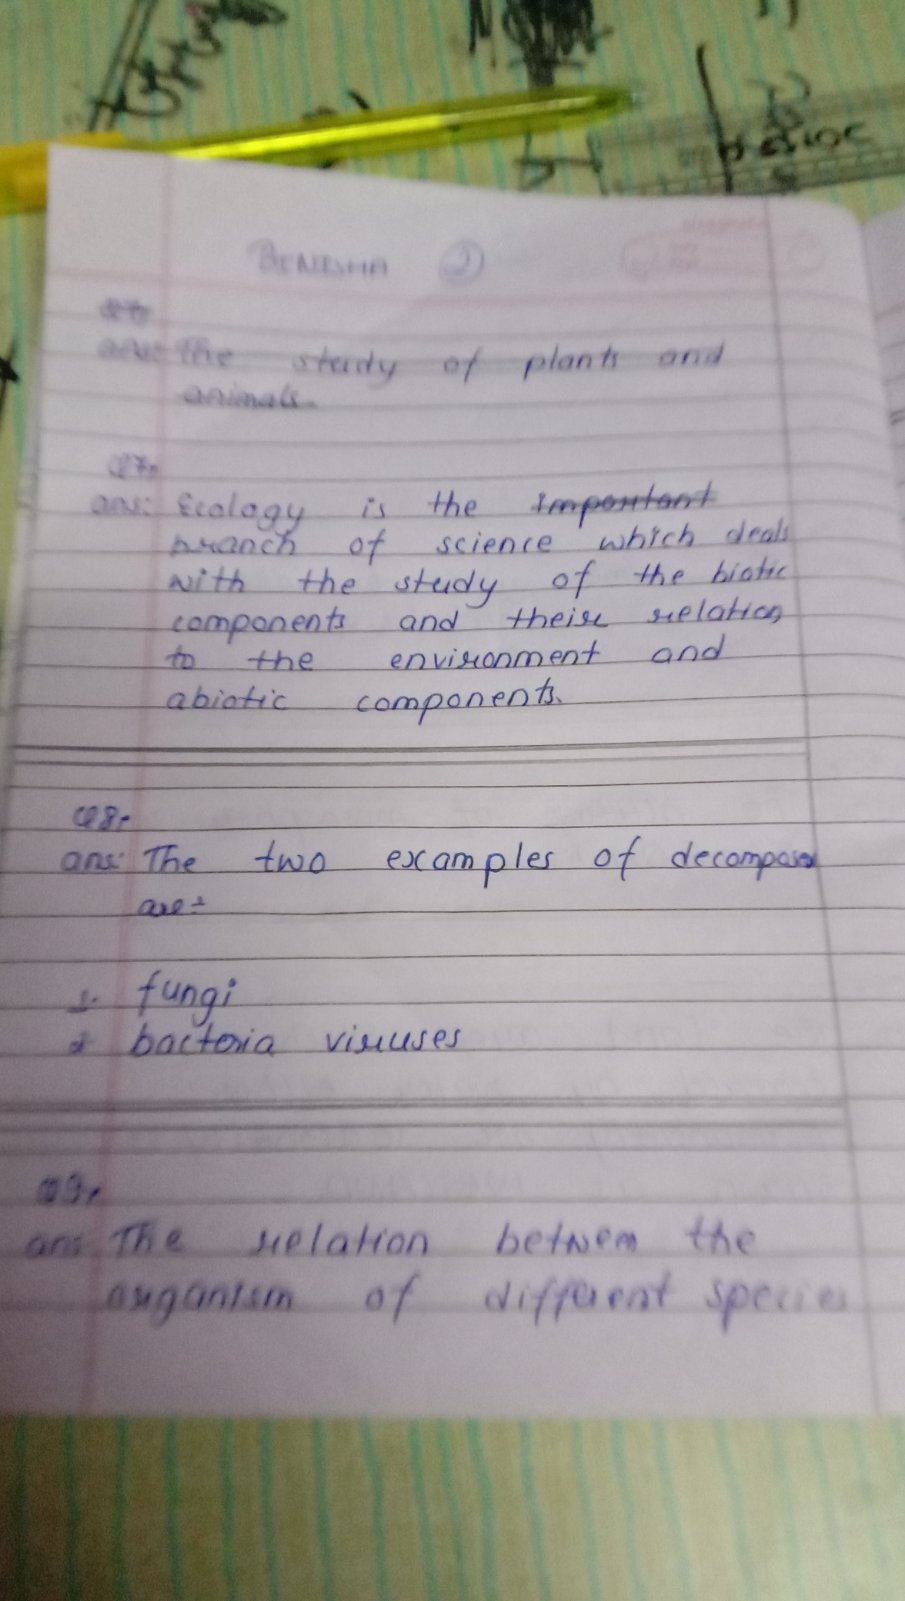 BENISHA 2
ans: the study of plants and
animals.
Q7.
ans: Ecology is the important
branch of science which deals
with the study of the biotic
components and their relation
to the environment and
abiotic components.
Q8.
ans: The two examples of decomposer
are:
1. fungi
2 bacteria viruses
Q9.
ans The relation betwem the
organism of different species